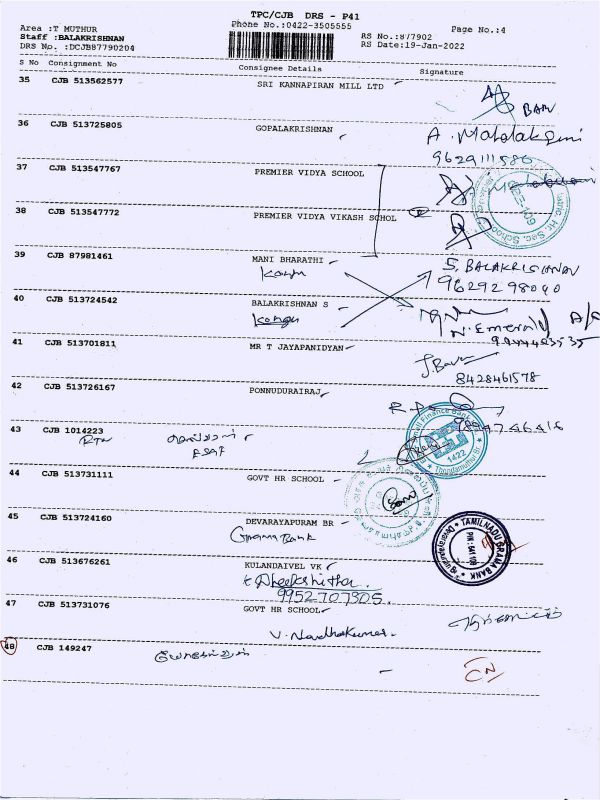 TPC/CJB DRS - P41
Area :T MUTHUR Phone No.:0422-3505555 Page No.:4
Staff :BALAKRISHNAN RS No.:877902
DRS No. :DCJB87790204 RS Date:19-Jan-2022
S No Consignment No Consignee Details Signature
35 CJB 513562577 SRI KANNAPIRAN MILL LTD
36 CJB 513725805 GOPALAKRISHNAN A. Mahalakshmi
9629111586
37 CJB 513547767 PREMIER VIDYA SCHOOL
38 CJB 513547772 PREMIER VIDYA VIKASH SCHOL
39 CJB 87981461 MANI BHARATHI S. BALAKRISHNAN
Kongu 9629298040
40 CJB 513724542 BALAKRISHNAN S
Kongu N. Emerald
41 CJB 513701811 MR T JAYAPANIDYAN
8428461578
42 CJB 513726167 PONNUDURAIRAJ
9894746416
43 CJB 1014223
ESAF
1422
44 CJB 513731111 GOVT HR SCHOOL
45 CJB 513724160 DEVARAYAPURAM BR
Grama Bank
TAMILNADU GRAMA BANK
PIN : 641 109
46 CJB 513676261 KULANDAIVEL VK
Dheekshitha.
9952707305.
47 CJB 513731076 GOVT HR SCHOOL
V. Nandhakumar.
48 CJB 149247